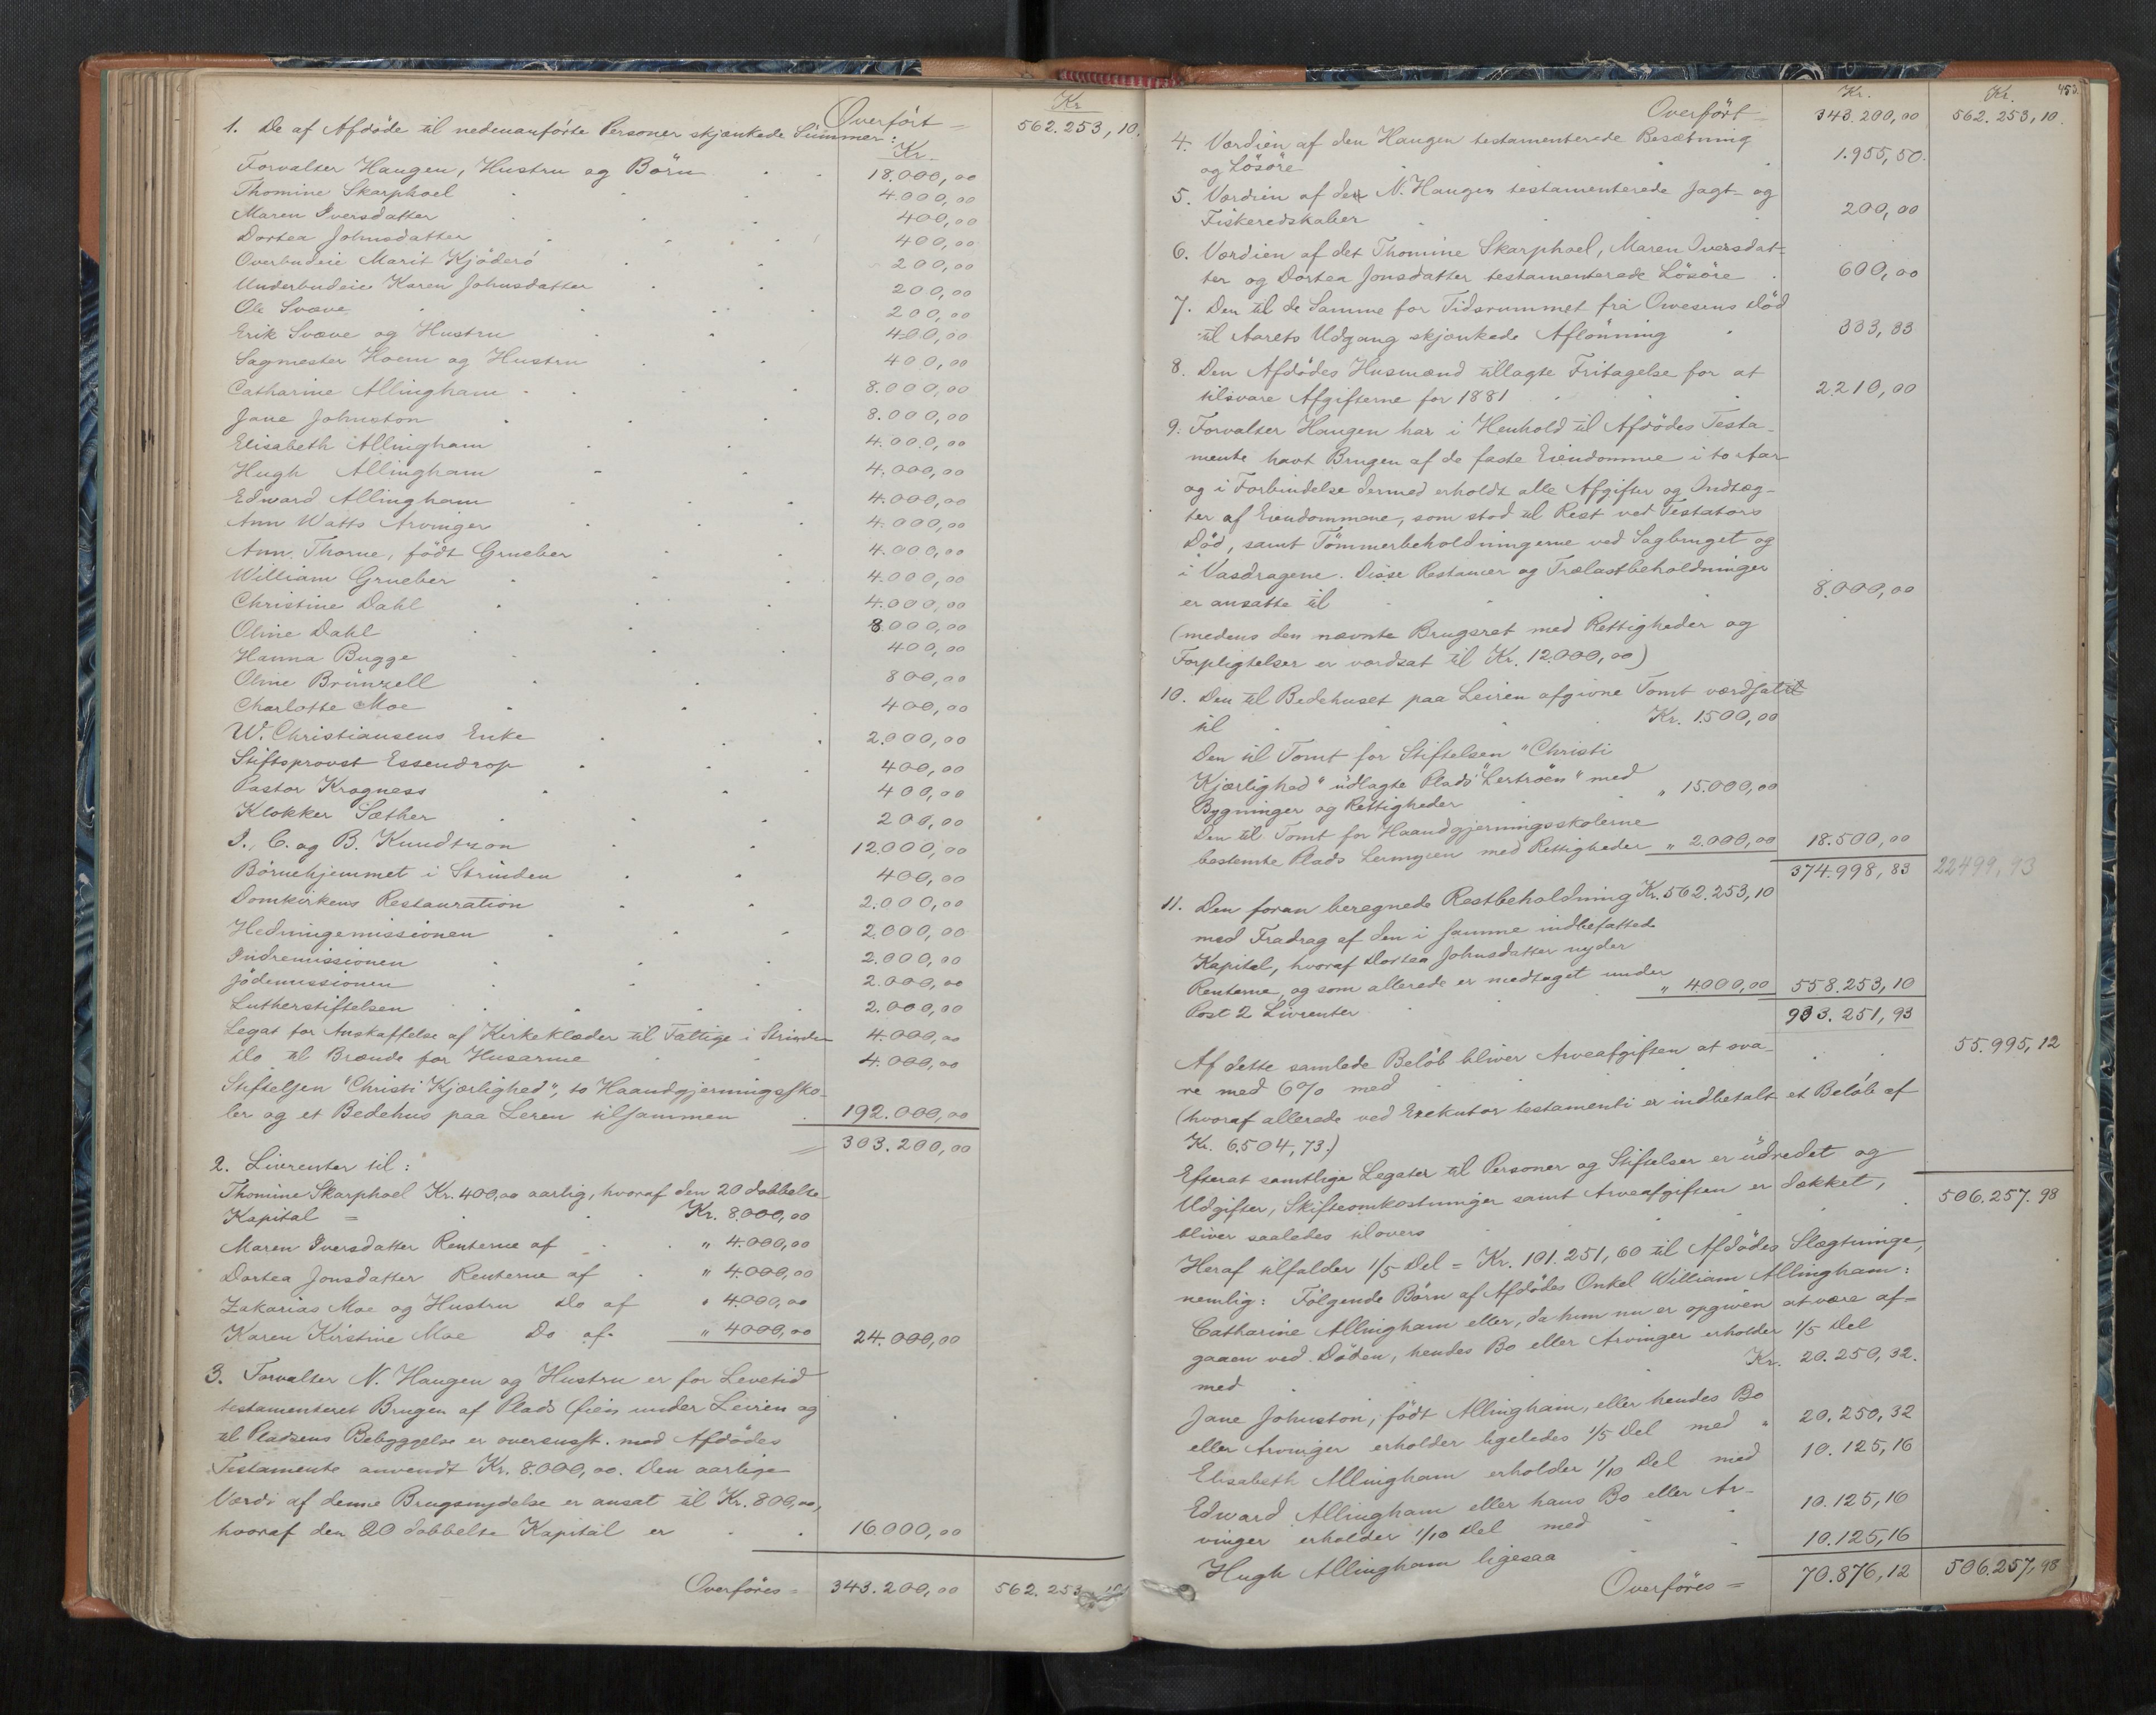 Overført = Kr 562.253,10.
1. De af Afdøde til nedenanførte Personer skjænkede Summer:
Kr.
Forvalter Haugen, Hustru og Børn 18.000,00
Thomine Skarphoel 4.000,00
Maren Iversdatter 400,00
Dortea Johnsdatter 400,00
Overbudeie Marit Kjøderø 200,00
Underbudeie Karen Johnsdatter 200,00
Ole Svæve 200,00
Erik Svæve og Hustru 400,00
Sagmester Hoem og Hustru 400,00
Catharine Allingham 8.000,00
Jane Johnston 8.000,00
Elisabeth Allingham 4.000,00
Hugh Allingham 4.000,00
Edward Allingham 4.000,00
Ann Watts Arvinger 4.000,00
Ann Thorne, født Grueber 4.000,00
William Grueber 4.000,00
Christine Dahl 4.000,00
Oline Dahl 8.000,00
Hanna Bugge 400,00
Oline Brünzell 800,00
Charlotte Moe 400,00
W. Christiansens Enke 2.000,00
Stiftsprovst Essendrop 400,00
Pastor Krogness 400,00
Klokker Sæther 200,00
I., C. og B. Knudtzon 12.000,00
Børnehjemmet i Strinden 400,00
Domkirkens Restauration 2.000,00
Hedningemissionen 2.000,00
Indremissionen 2.000,00
Jødemissionen 2.000,00
Lutherstiftelsen 2.000,00
Legat for Anskaffelse af Kirkeklæder til Fattige i Strinden 4.000,00
Do til Brænde for Husarme 4.000,00
Stiftelsen "Christi Kjærlighed", to Haandgjerningssko-
ler og et Bedehus paa Leren tilsammen 192.000,00
= 303.200,00
2. Livrenter til:
Thomine Skarphoel Kr. 400,00 aarlig, hvoraf den 20 dobbelte
Kapital = Kr. 8.000,00
Maren Iversdatter Renterne af " 4.000,00
Dortea Jonsdatter Renterne af " 4.000,00
Zakarias Moe og Hustru Do af " 4.000,00
Karen Kirstine Moe Do af " 4000,00 24.000,00
3. Forvalter N. Haugen og Hustru er for Levetid
testamenteret Brugen af Plads Øien under Leiren og
til Pladsens Bebyggelse er overensst. med Afdødes
Testamente anvendt Kr. 8.000,00. Den aarlige
Værdi af denne Brugsnydelse er ansat til Kr. 800,00,
hvoraf den 20 dobbelte Kapital er 16.000,00
Overføres = 343.200,00 562.253,10
453.
Kr. Kr.
Overført = 343.200,00 562.253,10.
4. Værdien af den Haugen testamenterede Besætning
og Løsøre 1.955,50.
5. Værdien af de N. Haugen testamenterede Jagt- og
Fiskeredskaber 200,00
6. Værdien af det Thomine Skarphoel, Maren Iversdat-
ter og Dortea Jonsdatter testamenterede Løsøre 600,00
7. Den til de Samme for Tidsrummet fra Owesens Død
til Aarets Udgang skjænkede Aflønning 333,33
8. Den Afdødes Husmænd tillagte Fritagelse for at
tilsvare Afgifterne for 1881 2.210,00
9. Forvalter Haugen har i Henhold til Afdødes Testa-
mente havt Brugen af de faste Eiendomme i to Aar
og i Forbindelse dermed erholdt alle Afgifter og Indtæg-
ter af Eiendommene, som stod til Rest ved Testators
Død, samt Tømmerbeholdningerne ved Sagbruget og
i Vasdragene. Disse Restancer og Trælastbeholdninger
er ansatte til 8.000,00
(medens den nævnte Brugsret med Rettigheder og
Forpligtelser er værdsat til Kr. 12.000,00)
10. Den til Bedehuset paa Leiren afgivne Tomt værdsat
til Kr. 1.500,00
Den til Tomt for Stiftelsen "Christi
Kjærlighed" udlagte Plads "Lertrøen" med
Bygninger og Rettigheder " 15.000,00
Den til Tomt for Haandgjerningsskolerne
bestemte Plads Lermyren med Rettigheder " 2.000,00 18.500,00
374.998,83 22499,93
11. Den foran beregnede Restbeholdning Kr. 562.253,10
med Fradrag af den i samme indbefattede
Kapital, hvoraf Dortea Johnsdatter nyder
Renterne, og som allerede er medtaget under
Post 2 Livrenter " 4.000,00 558.253,10
933.251,93
Af dette samlede Beløb bliver Arveafgiften at sva-
re med 6% med 55.995,12
(hvoraf allerede ved Exekutor testamenti er indbetalt et Beløb af
Kr. 6.504,73.)
Efterat samtlige Legater til Personer og Stiftelser er udredet og
Udgifter, Skifteomkostninger samt Arveafgiften er dækket,
bliver saaledes tilovers 506.257.98
Heraf tilfalder 1/5 Del = Kr. 101.251,60 til Afdødes Slægtninge,
nemlig: Følgende Børn af Afdødes Onkel William Allingham:
Catharine Allingham eller, da hun nu er opgiven at være af-
gaaen ved Døden, hendes Bo eller Arvinger erholder 1/5 Del
med Kr. 20.250,32.
Jane Johnston, født Allingham, eller hendes Bo
eller Arvinger erholder ligeledes 1/5 Del med " 20.250,32
Elisabeth Allingham erholder 1/10 Del med 10.125,16
Edward Allingham eller hans Bo eller Ar-
vinger erholder 1/10 Del med 10.125,16
Hugh Allingham ligesaa 10.125,16
Overføres = 70.876,12 506.257,98